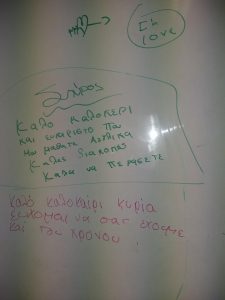 I'h
love
Σπύρος
Καλο καλοκερι
και ευχαριστο που
μου μαθατε Αγγλικα
Καλες διακοπες
Καλα να περασετε
Καλό καλοκαίρι κυρία
ευχομαι να σας εχουμε
και του χρόνου!